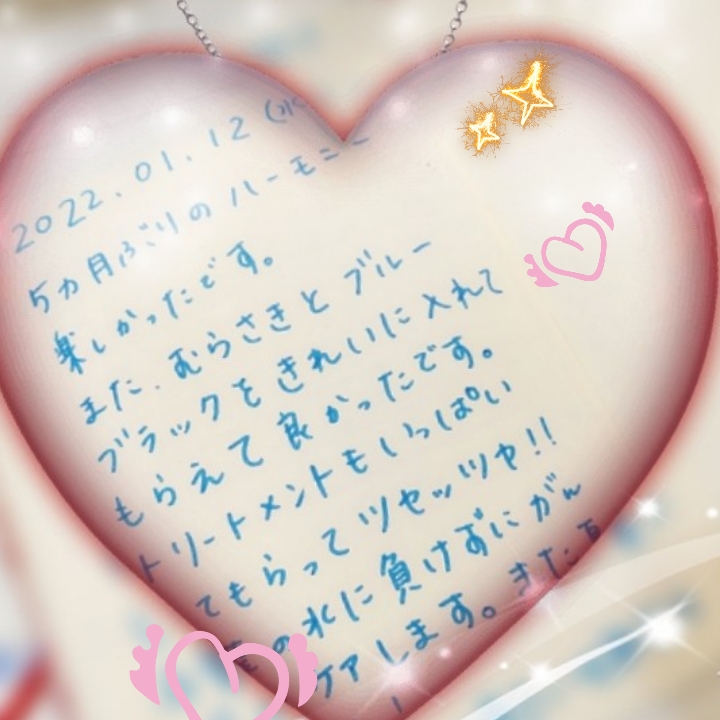 2022.01.12 (水
5カ月ぶりのハーモニー
楽しかったです。
また、むらさきと ブルー
ブラックをきれいに入れて
もらえて良かったです。
トリートメントもいっぱい
てもらって ツヤッツヤ!!
の水に負けずにがん
ケアします。また